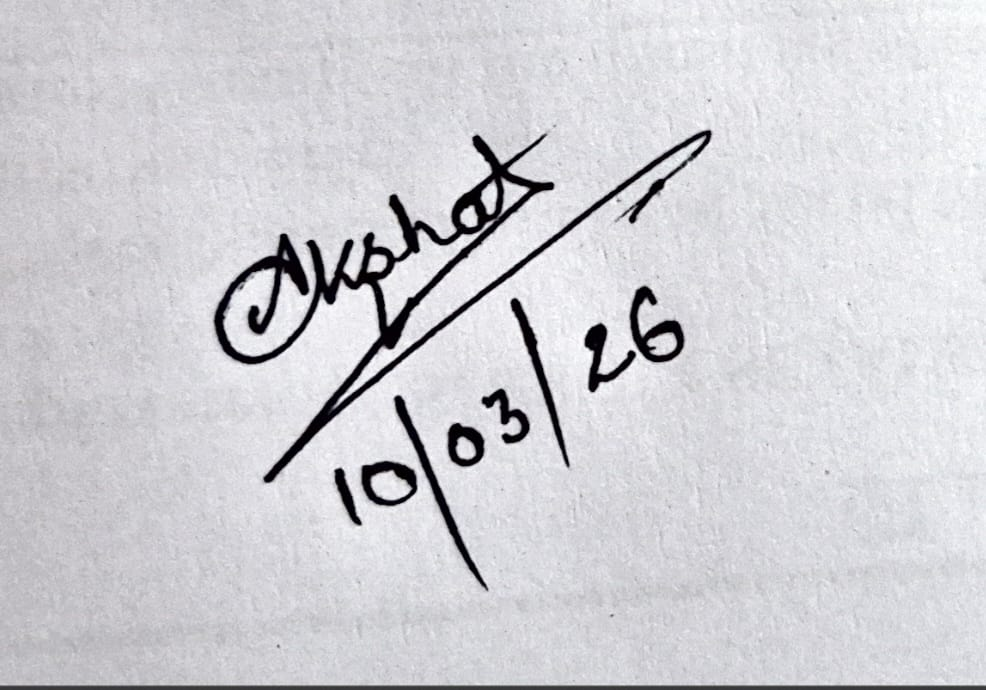 Akshat
10/03/26